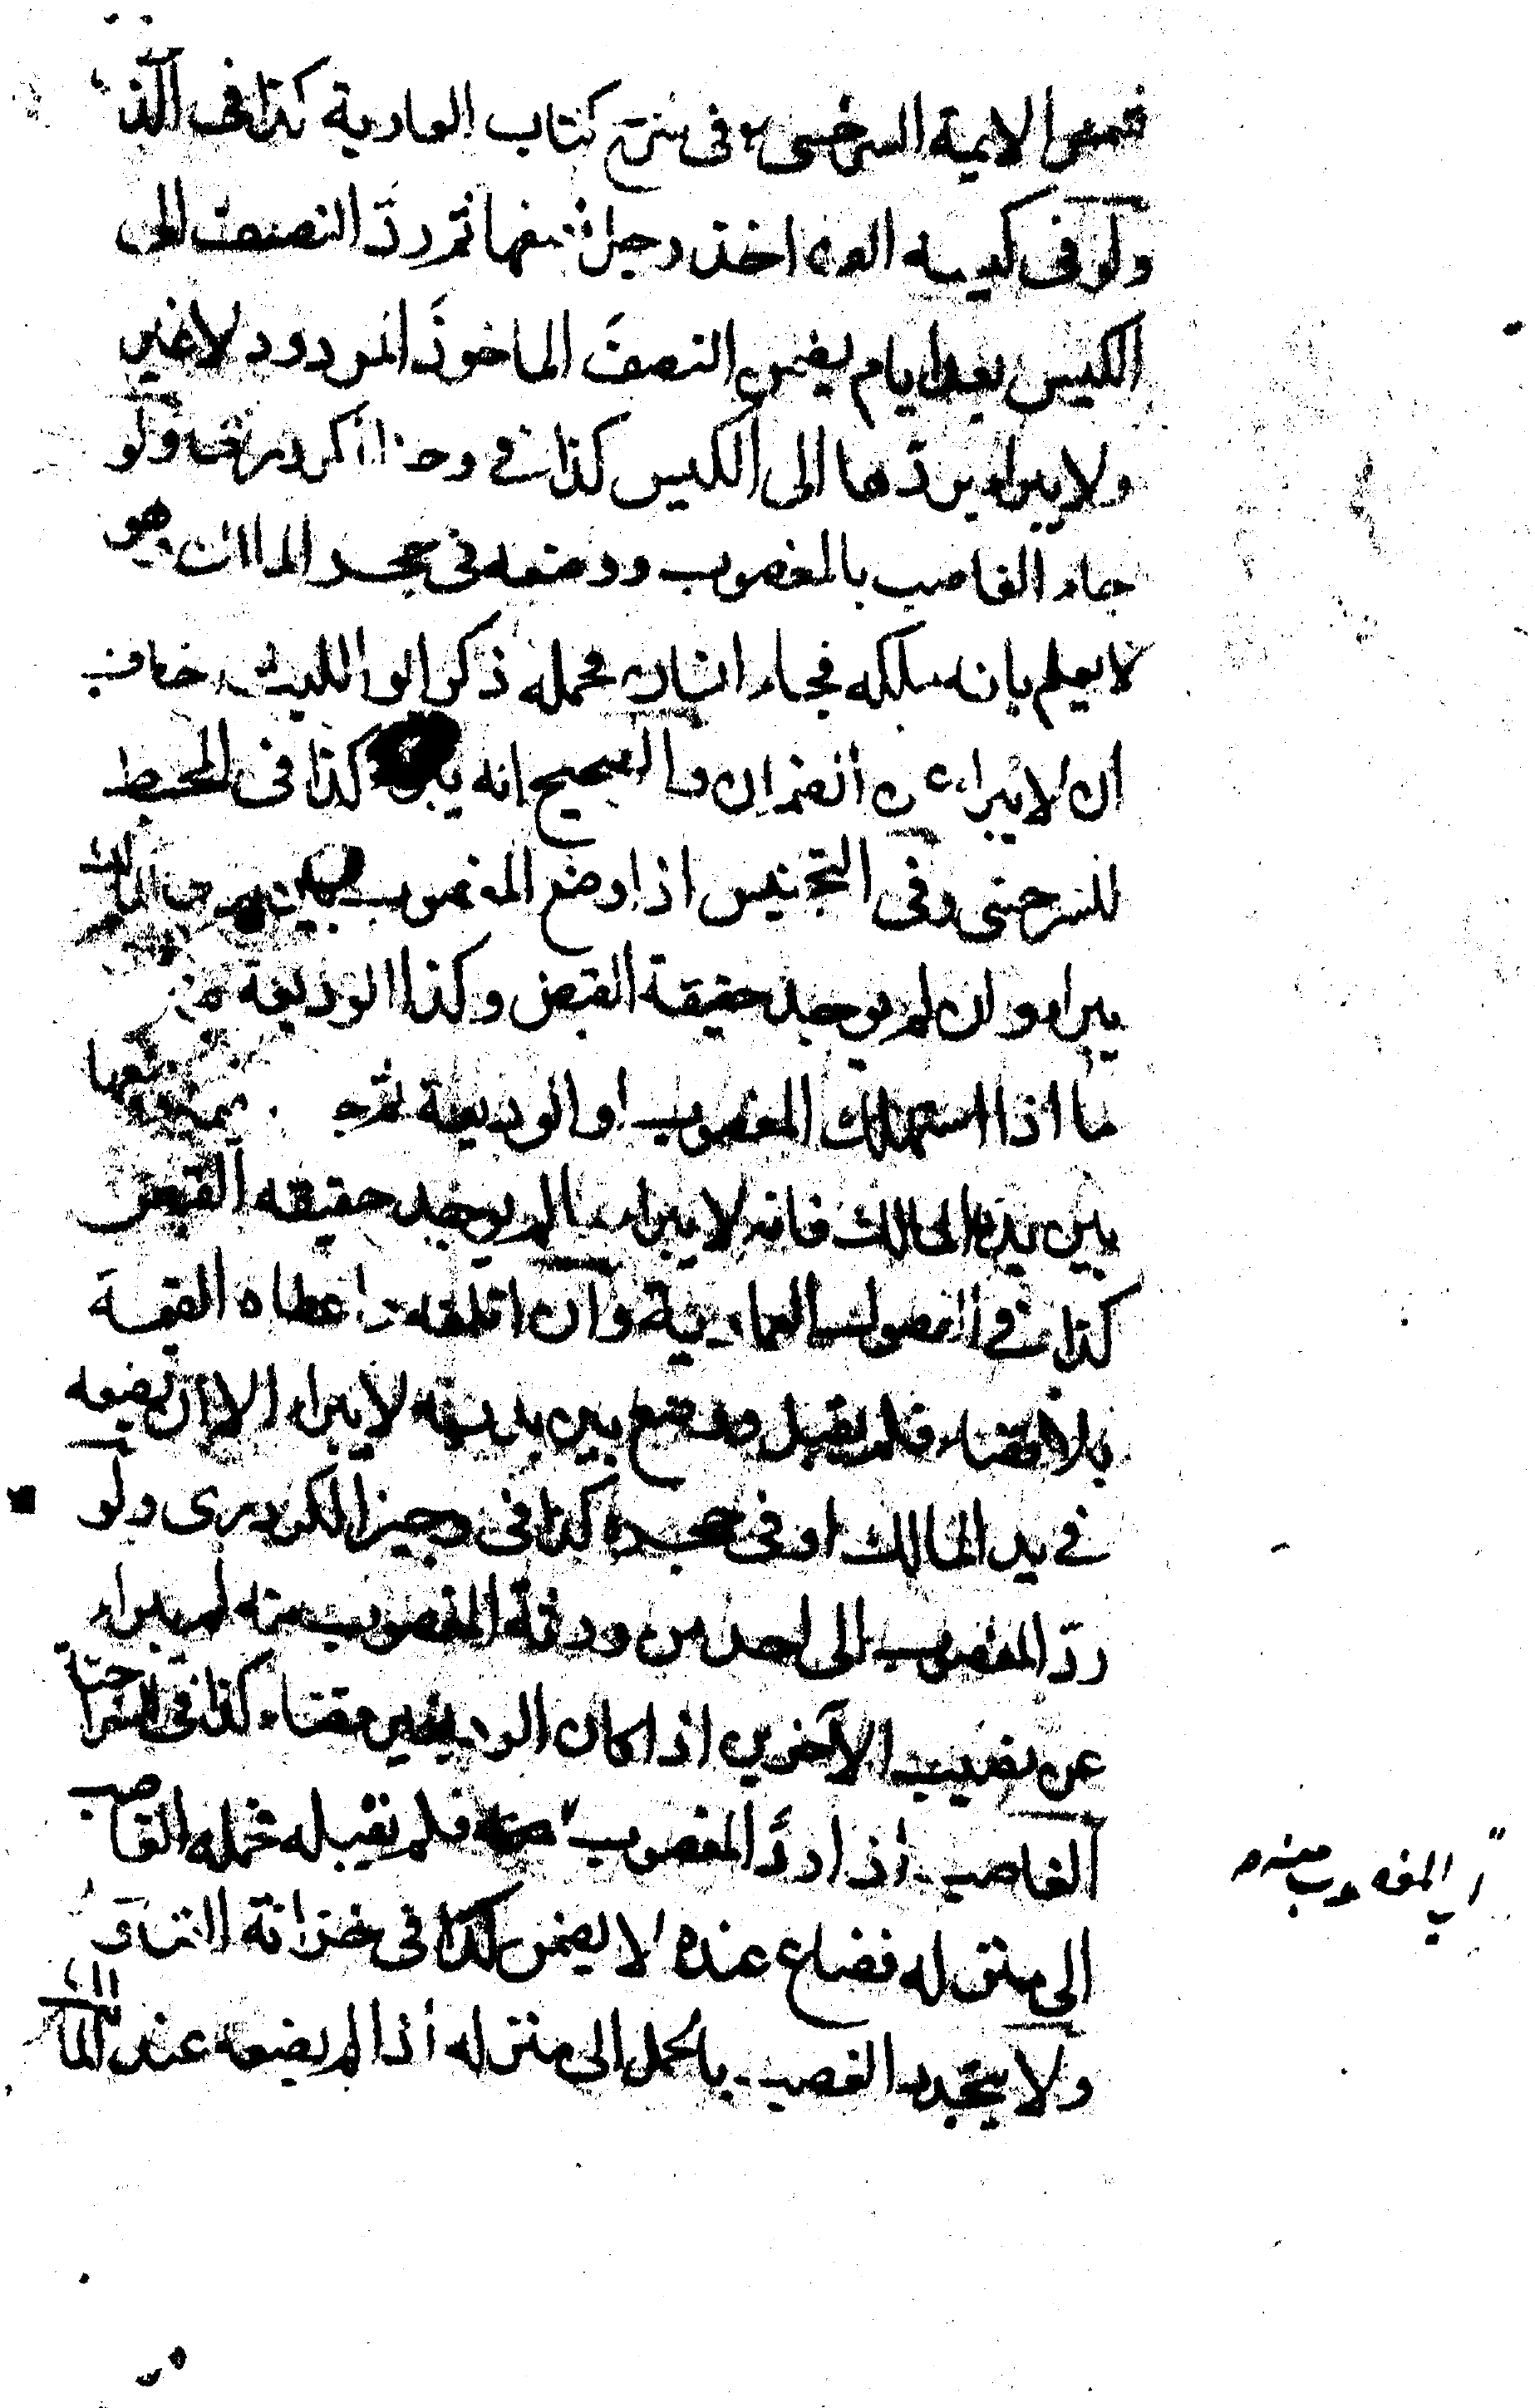 شمس الائمة السرخسى فى شرح كتاب العارية كذا فى الذ
ولو فى كيسه الف اخذ رجل نصفها ثم ردّ النصف الى
الكيس بعد ايام يضمن النصف الماخوذ المردود لا غير
ولا يبراء بردّها الى الكيس كذا فى وجيز الكردرى ولو
جاء الغاصب بالمغصوب ووضعه فى حجر المالك وهو
لا يعلم بانه ملكه فجاء انسان فحمله ذكر ابو الليث
ان لا يبراء عن الضمان والصحيح انه يبراء كذا فى المحيط
للسرخسى وفى التجنيس اذا وضع المغصوب بين يدى المالك
يبراء وان لم يوجد حقيقة القبض وكذا الوديعة
ما اذا استهلك المغصوب او الوديعة ثم بقيمتها
بين يدى المالك فانه لا يبراء ما لم يوجد حقيقه القبض
كذا فى الفصول العمادية وان اتلفه واعطاه القيمة
بلا قضاء فلم يقبل ووضع بين يديه لا يبراء الا ان يضعه
فى يد المالك او فى حجره كذا فى وجيز الكردرى ولو
ردّ المغصوب الى احد من ورثة المغصوب منه لم يبراء
عن نصيب الآخرين اذا كان الرد بغير قضاء كذا فى السراجية
الغاصب اذا ردّ المغصوب فلم يقبله فحمله الغاصب
الى منزله فضاع عنده لا يضمن كذا فى خزانة الفتاوى
ولا يتجدد الغصب بالحمل الى منزله اذا لم يضعه عند الما
اى المغصوب منه